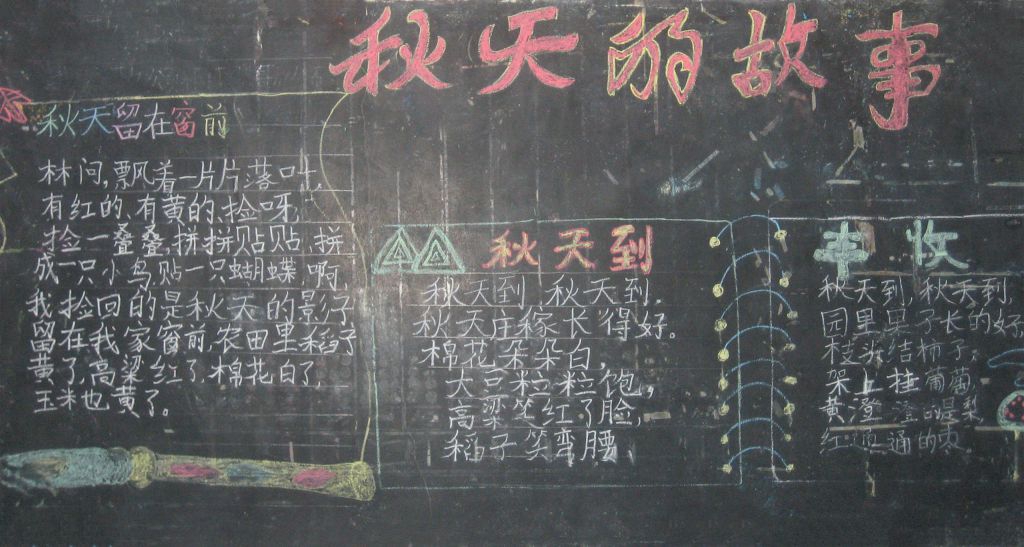 秋天的故事
秋天留在窗前
林问,飘着一片片落叶,
有红的、有黄的、捡呀,
捡一叠叠,拼拼贴贴,拼
成一只小鸟,贴一只蝴蝶,啊,
我捡回的是秋天的影子
留在我家窗前,农田里稻子
黄了,高粱红了,棉花白了,
玉米也黄了。
秋天到
秋天到,秋天到,
秋天庄稼长得好。
棉花朵朵白
大豆粒粒饱,
高粱笑红了脸,
稻子笑弯腰
丰收
秋天到,秋天到,
园里果子长的好,
枝头结柿子,
架上挂葡萄,
黄澄澄的是梨
红通通的枣。